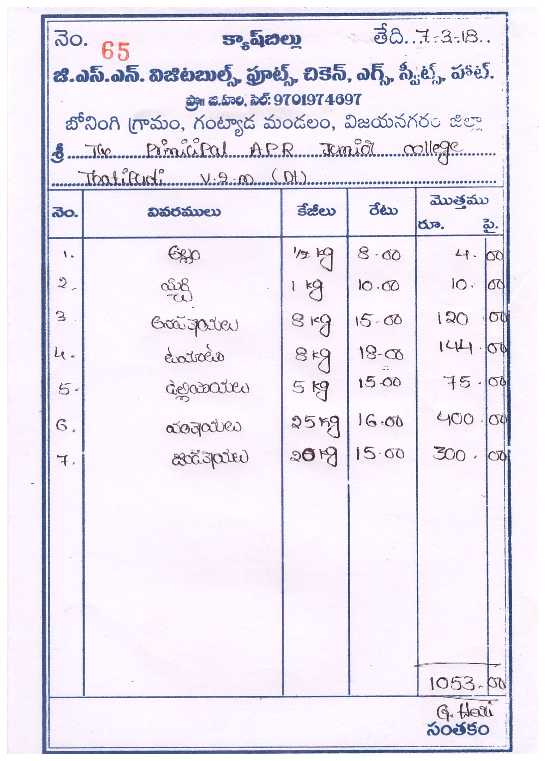 నెం. 65 క్యాష్‌బిల్లు తేది..7-3-18..
జి.ఎస్.ఎన్. విజిటబుల్స్, ఫ్రూట్స్, చికెన్, ఎగ్స్, స్వీట్స్, హాట్.
ప్రొః జి.హరి, సెల్: 9701974697
బోనింగి గ్రామం, గంట్యాడ మండలం, విజయనగరం జిల్లా
శ్రీ The Principal APR Junior college
Thatipudi V.Z.M (Dt)
నెం. వివరములు కేజీలు రేటు మొత్తము
రూ. పై.
1. అల్లం ½ kg 8.00 4.00
2. 1 kg 10.00 10.00
3 8 kg 15.00 120.00
4. టమాటో 8 kg 18.00 144.00
5. ఉల్లిపాయలు 5 kg 15.00 75.00
6. వంకాయలు 25 kg 16.00 400.00
7. దొండకాయలు 20 kg 15.00 300.00
1053.00
G. Hari
సంతకం